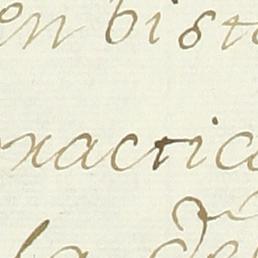 en bist
practica
la de